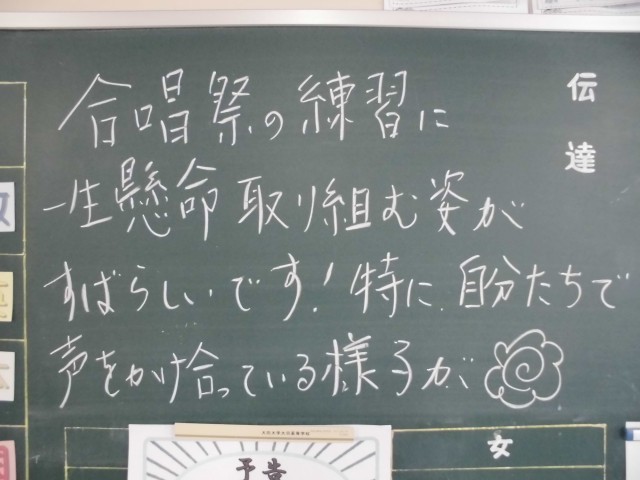 合唱祭の練習に
一生懸命取り組む姿が
すばらしいです!特に、自分たちで
声をかけ合っている様子が、
伝達
女
予告